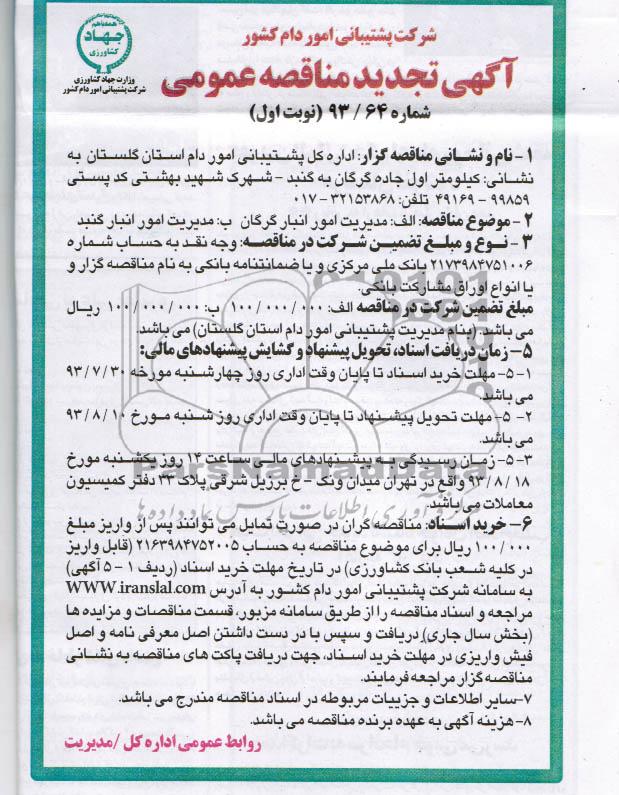 شرکت پشتیبانی امور دام کشور
همه با هم
جهاد
کشاورزی
وزارت جهاد کشاورزی
شرکت پشتیبانی امور دام کشور
آگهی تجدید مناقصه عمومی
شماره ۹۳/۶۴ (نوبت اول)
۱- نام و نشانی مناقصه گزار: اداره کل پشتیبانی امور دام استان گلستان به
نشانی: کیلومتر اول جاده گرگان به گنبد - شهرک شهید بهشتی کد پستی
۹۹۸۵۹ - ۴۹۱۶۹ تلفن: ۳۲۱۵۳۸۶۸ - ۰۱۷
۲- موضوع مناقصه: الف: مدیریت امور انبار گرگان ب: مدیریت امور انبار گنبد
۳- نوع و مبلغ تضمین شرکت در مناقصه: وجه نقد به حساب شماره
۲۱۷۳۹۸۴۷۵۱۰۰۶ بانک ملی مرکزی و یا ضمانتنامه بانکی به نام مناقصه گزار و
یا انواع اوراق مشارکت بانکی.
مبلغ تضمین شرکت در مناقصه الف: ۱۰۰/۰۰۰/۰۰۰ ب: ۱۰۰/۰۰۰/۰۰۰ ریال
می باشد. (بنام مدیریت پشتیبانی امور دام استان گلستان) می باشد.
۵- زمان دریافت اسناد، تحویل پیشنهاد و گشایش پیشنهادهای مالی:
۵-۱- مهلت خرید اسناد تا پایان وقت اداری روز چهارشنبه مورخه ۹۳/۷/۳۰
می باشد.
۵-۲- مهلت تحویل پیشنهاد تا پایان وقت اداری روز شنبه مورخ ۹۳/۸/۱۰
می باشد.
۵-۳- زمان رسیدگی به پیشنهادهای مالی ساعت ۱۴ روز یکشنبه مورخ
۹۳/۸/۱۸ واقع در تهران میدان ونک - خ برزیل شرقی پلاک ۲۳ دفتر کمیسیون
معاملات می باشد.
ParsNamadData
گردآوری اطلاعات پارس نماد داده ها
۶- خرید اسناد: مناقصه گران در صورت تمایل می توانند پس از واریز مبلغ
۱۰۰/۰۰۰ ریال برای موضوع مناقصه به حساب ۲۱۶۳۹۸۴۷۵۲۰۰۵ (قابل واریز
در کلیه شعب بانک کشاورزی) در تاریخ مهلت خرید اسناد (ردیف ۱-۵ آگهی)
به سامانه شرکت پشتیبانی امور دام کشور به آدرس WWW.iranslal.com
مراجعه و اسناد مناقصه را از طریق سامانه مزبور، قسمت مناقصات و مزایده ها
(بخش سال جاری) دریافت و سپس با در دست داشتن اصل معرفی نامه و اصل
فیش واریزی در مهلت خرید اسناد، جهت دریافت پاکت های مناقصه به نشانی
مناقصه گزار مراجعه فرمایند.
۷- سایر اطلاعات و جزییات مربوطه در اسناد مناقصه مندرج می باشد.
۸- هزینه آگهی به عهده برنده مناقصه می باشد.
روابط عمومی اداره کل / مدیریت